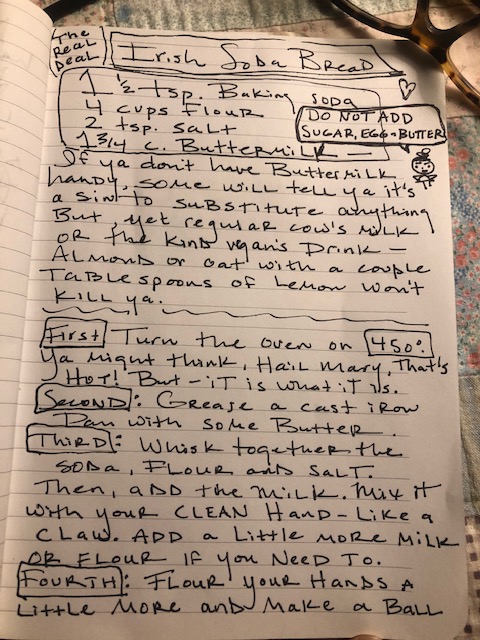 The Real Deal
Irish Soda Bread
1 ½ tsp. Baking Soda
4 cups Flour
2 tsp. Salt
1 3/4 c. Buttermilk
DO NOT ADD
SUGAR, EGG - BUTTER
If ya don't have Buttermilk
handy, some will tell ya it's
a sin to substitute anything
But, yet regular cow's milk
or the kind vegans Drink -
Almond or oat with a couple
Tablespoons of Lemon won't
Kill ya.
First Turn the oven on 450°.
Ya might think, Hail Mary, That's
HOT! But - iT is what iT is.
Second: Grease a cast iron
Pan with some Butter.
Third: Whisk together the
Soda, Flour and Salt.
Then, add the milk. Mix it
with your CLEAN Hand - Like a
claw. Add a Little more milk
or Flour if you need to.
Fourth: Flour your Hands a
Little more and make a Ball